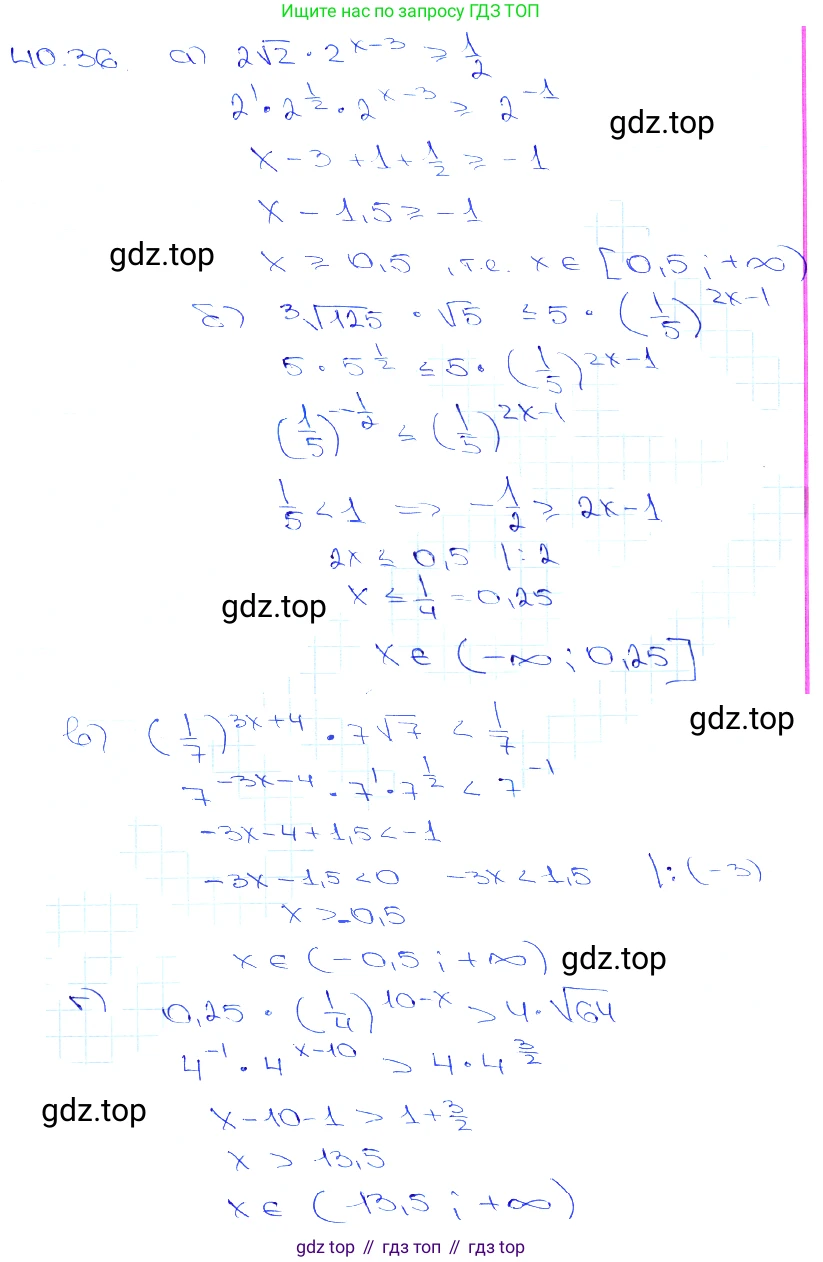 Ищите нас по запросу ГДЗ ТОП
40.36. а) 2√2 · 2^(x-3) ≥ 1/2
2^1 · 2^(1/2) · 2^(x-3) ≥ 2^(-1)
gdz.top
x - 3 + 1 + 1/2 ≥ -1
x - 1,5 ≥ -1
gdz.top
x ≥ 0,5 , т.е. x ∈ [0,5 ; +∞)
б) ³√125 · √5 ≤ 5 · (1/5)^(2x-1)
5 · 5^(1/2) ≤ 5 · (1/5)^(2x-1)
(1/5)^(-1/2) ≤ (1/5)^(2x-1)
1/5 < 1 => -1/2 ≥ 2x - 1
2x ≤ 0,5 |: 2
x ≤ 1/4 = 0,25
gdz.top
x ∈ (-∞ ; 0,25]
gdz.top
в) (1/7)^(3x+4) · 7√7 < 1/7
7^(-3x-4) · 7^1 · 7^(1/2) < 7^(-1)
-3x - 4 + 1,5 < -1
-3x - 1,5 < 0 -3x < 1,5 |: (-3)
x > -0,5
x ∈ (-0,5 ; +∞)
gdz.top
г) 0,25 · (1/4)^(10-x) > 4 · √64
4^(-1) · 4^(x-10) > 4 · 4^(3/2)
gdz.top
x - 10 - 1 > 1 + 3/2
x > 13,5
x ∈ (13,5 ; +∞)
gdz top // гдз топ // gdz top